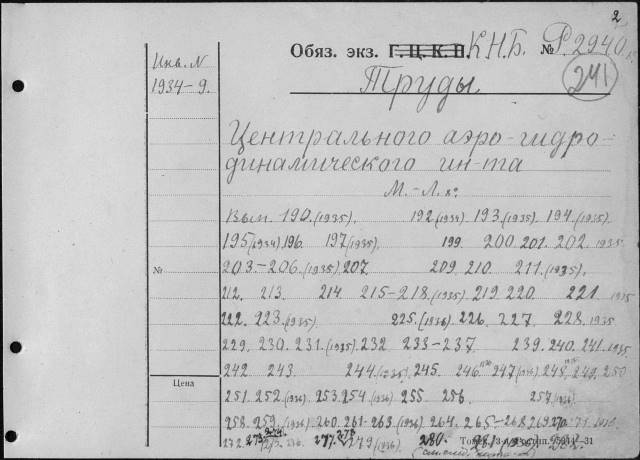 2
Обяз. экз. Г.Ц.К.П. К.Н.Б. № Р.2940
241
Инв. N
1934-9.
Труды
Центрального аэро-гидро-
динамического ин-та
М.-Л.
Вып. 190.(1935). 192(1934) 193.(1935). 194.(1935).
195(1934) 196. 197(1935). 199. 200. 201. 202. 1935
№ 203.-206.(1935). 207. 209. 210. 211.(1935).
212. 213. 214. 215-218.(1935). 219. 220. 221. 1935
222. 223.(1935) 225.(1936) 226. 227. 228. 1935
229. 230. 231.(1935). 232 233-237. 239. 240. 241. 1935
242 243. 244.(1935). 245. 246. 247 248. 249. 250
Цена
251. 252.(1936) 253. 254.(1936) 255 256. 257
258. 259.(1936) 260. 261-263.(1936) 264. 265-268 269 270
272. 273 277. 278 279(1936) 280. 281